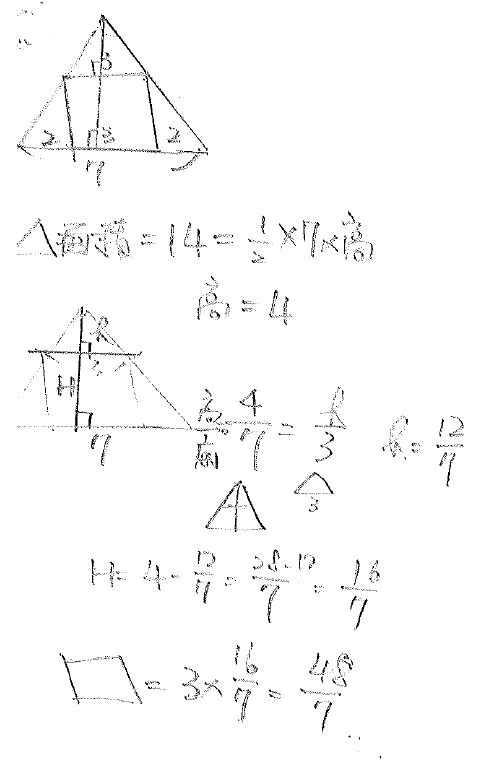 3
2 3 2
7
△面積 = 14 = 1/2 × 7 × 高
高 = 4
h
3
H
7
高/底 = 4/7 = h/3 h = 12/7
3
H = 4 - 12/7 = 28-12/7 = 16/7
▱ = 3 × 16/7 = 48/7